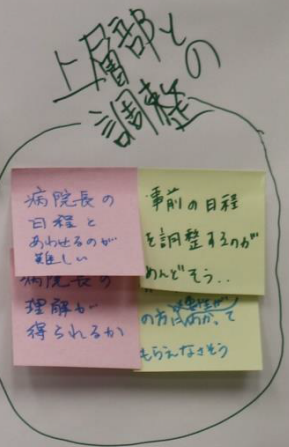 上層部との
調整
病院長の
日程と
あわせるのが
難しい
事前の日程
を調整するのが
めんどそう..
病院長の
理解が
得られるか
必要性が
の方にわかって
もらえなさそう